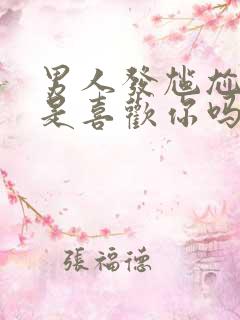 男人發尷尬
是喜歡你吗
張福德